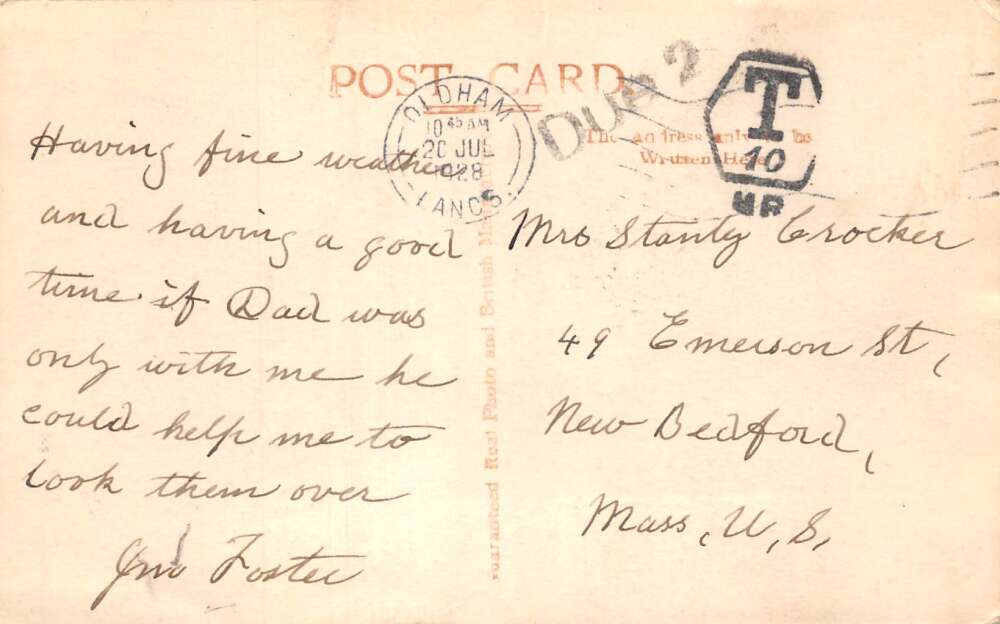 POST CARD.
OLDHAM
10 45 AM
20 JUL
1928
LANCS.
Due 2
T
10
The address only to be
Written Here
Having fine weather
and having a good
time if Dad was
only with me he
could help me to
look them over
Jno Foster
Guaranteed Real Photo and British M
Mrs Stanly Crocker
49 Emerson St,
New Bedford,
Mass, U, S,